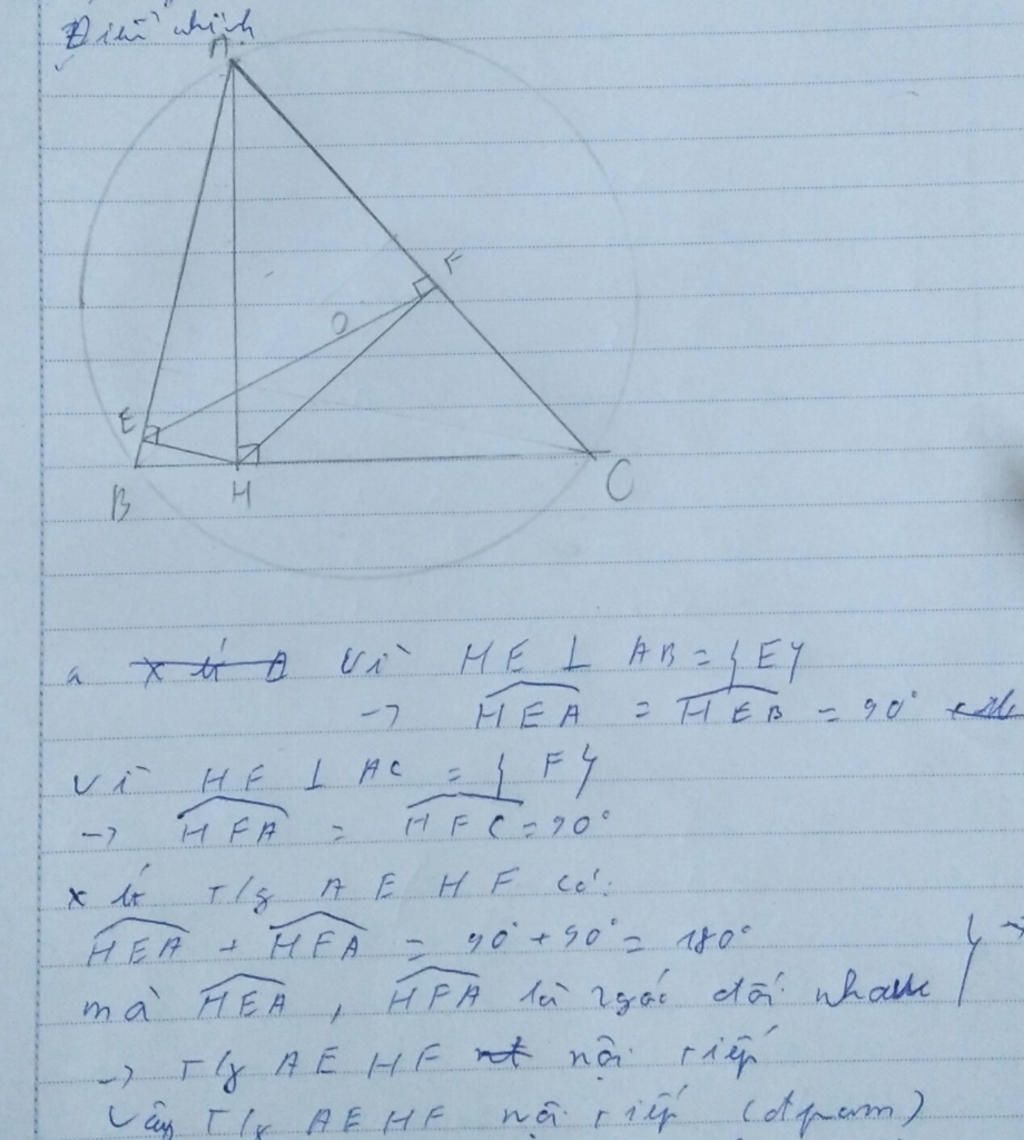 Điểm chính
A
F
O
E
B
H
C
a Vì HE ⊥ AB = {E}
-> HEA = HEB = 90°
Vì HF ⊥ AC = {F}
-> HFA = HFC = 90°
xét T/g AEHF có:
HEA + HFA = 90° + 90° = 180° } ->
mà HEA, HFA là 2 góc đối nhau
-> T/g AEHF nội tiếp
Vậy T/g AEHF nội tiếp (đpcm)